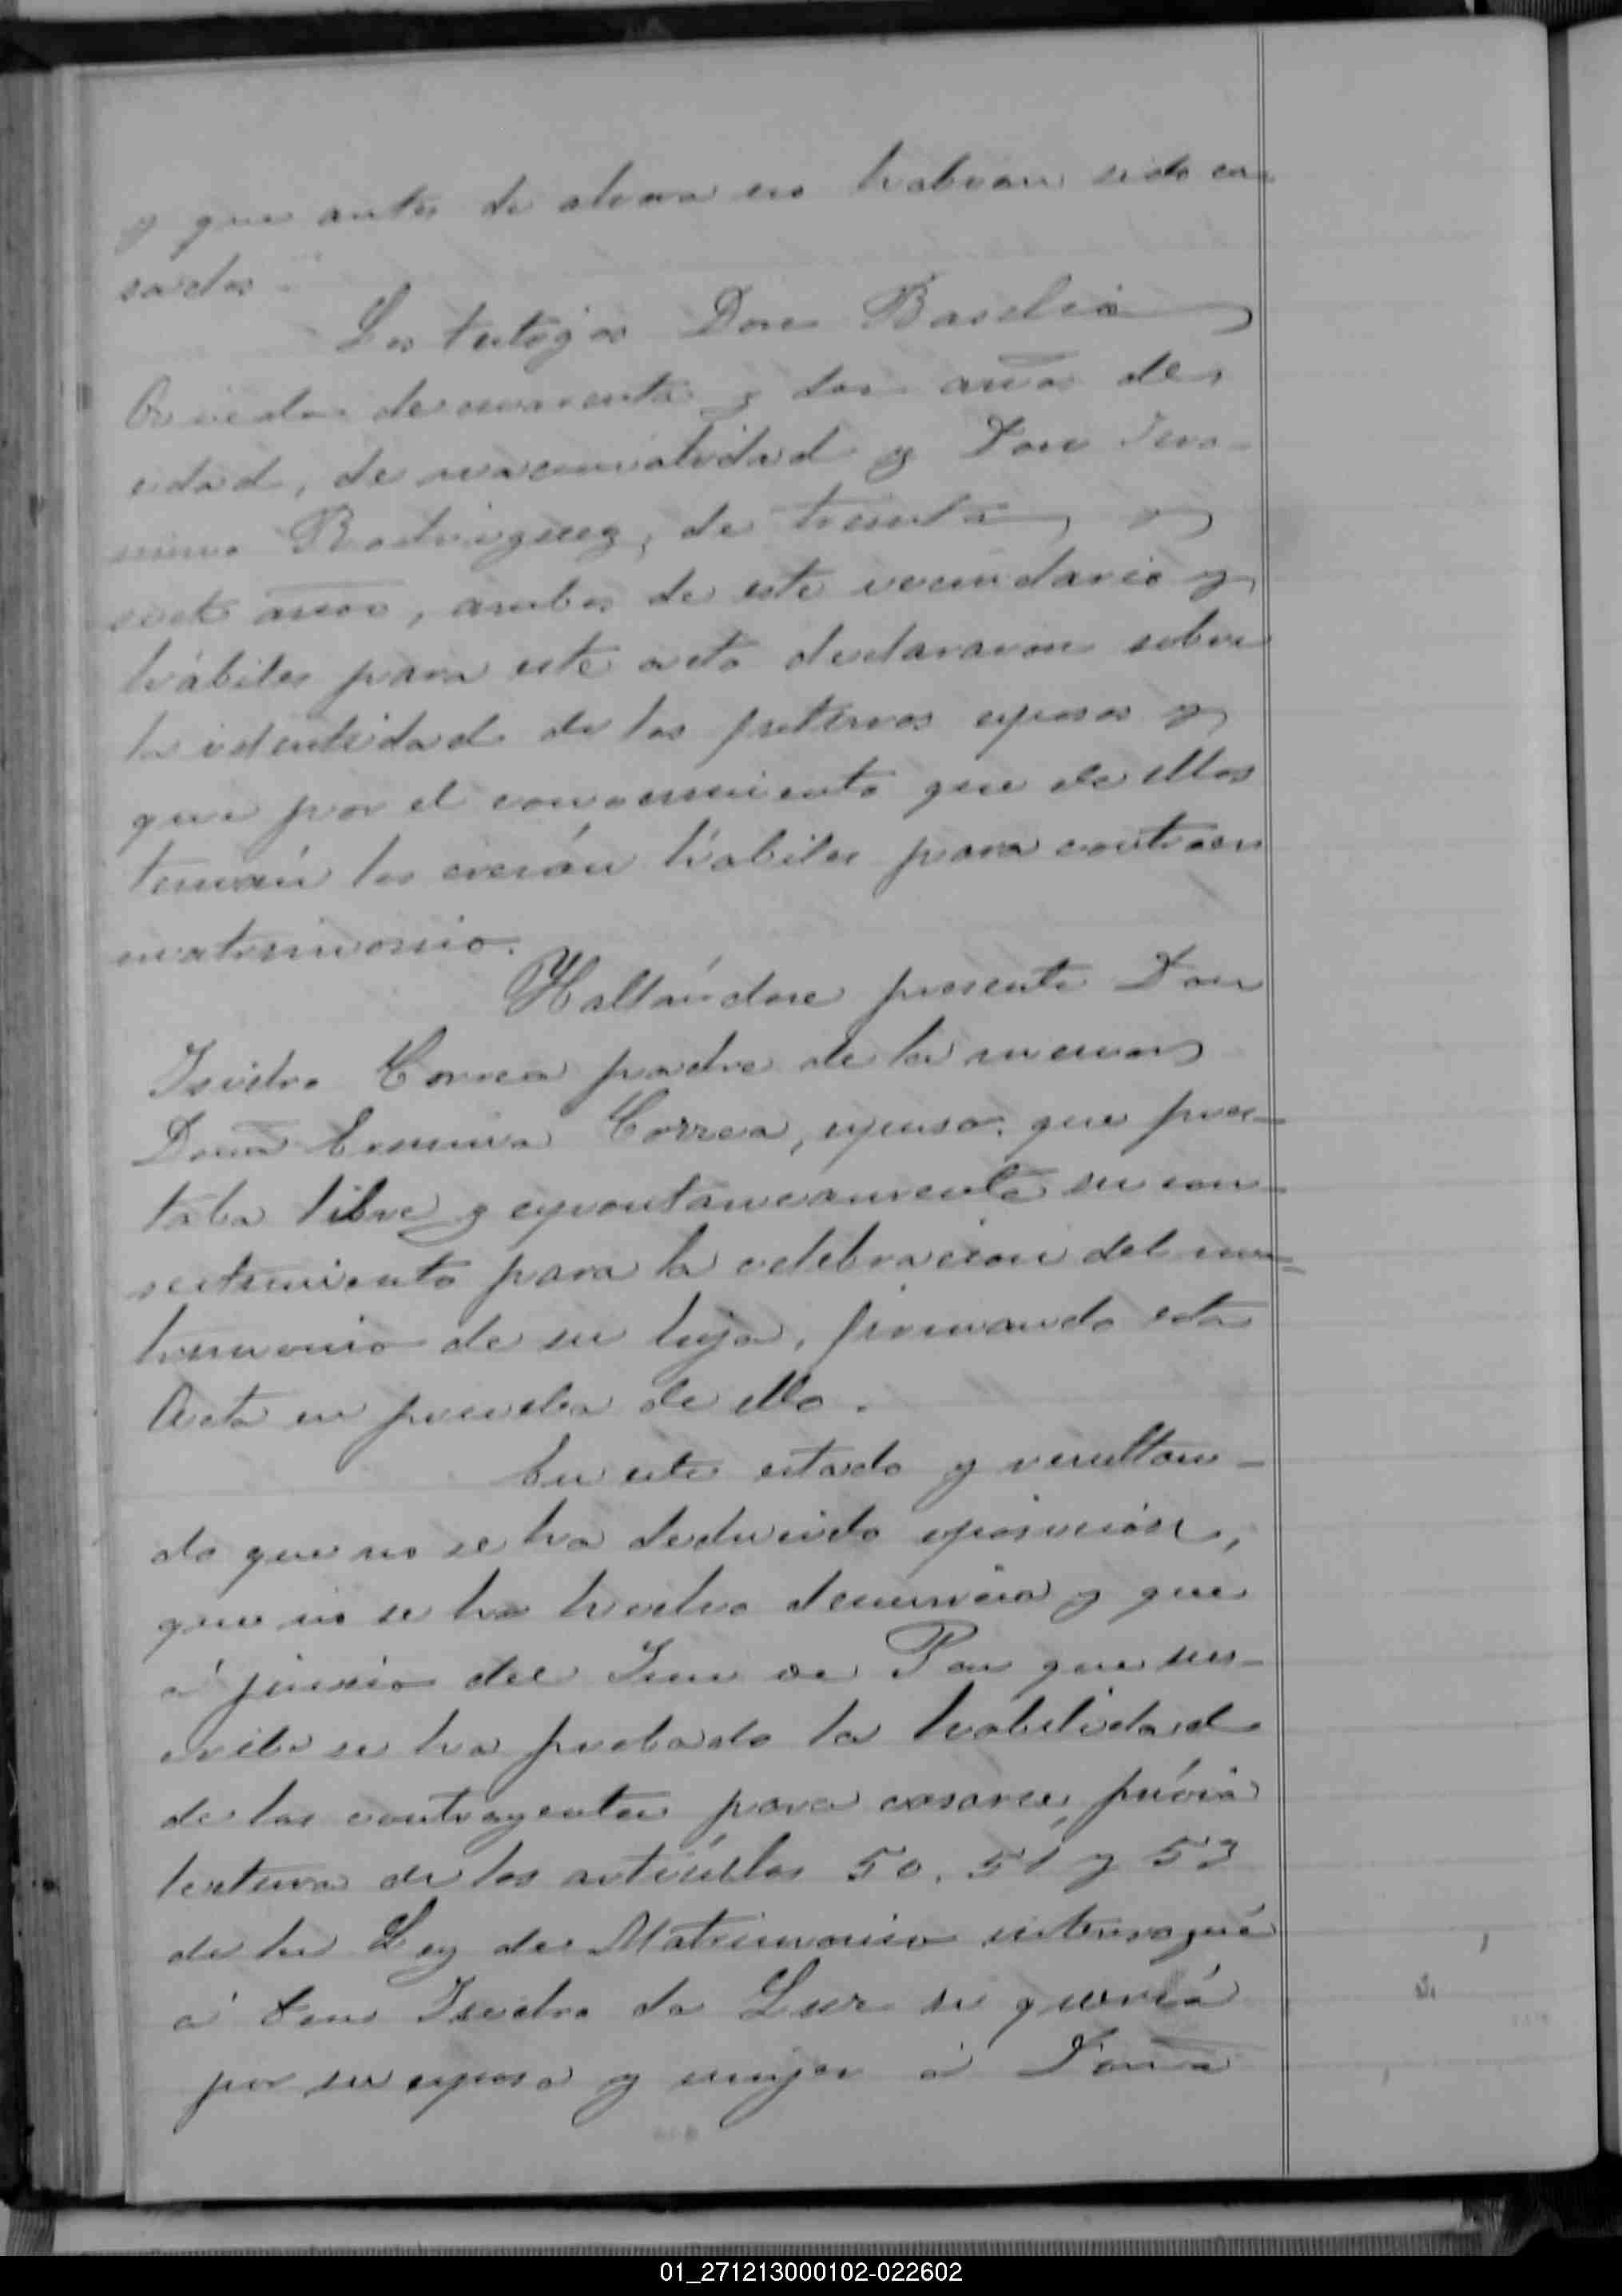 y que antes de ahora no habian sido ca-
sados.
Los testigos Don Basilio
Oviedo de cuarenta y dos años de
edad, de nacionalidad y Don
Rodriguez, de treinta y
siete años, ambos de este vecindario y
hábiles para este acto declararon sobre
la identidad de los futuros esposos y
que por el conocimiento que de ellos
tenian los creian hábiles para contraer
matrimonio.
Hallándose presente Don
Isidro Correa padre de la menor
Doña Correa, expuso: que pres-
taba libre y expontaneamente su con-
sentimiento para la celebracion del ma=
trimonio de su hija, firmando esta
Acta en prueba de ello.
En este estado y resultan-
do que no se ha deducido oposición,
que no se ha hecho denuncia y que
á juicio del Juez de Paz que sus-
cribe se ha probado la habilidad
de los contrayentes para casarse, prévia
lectura de los artículos 50, 51 y 53
de la Ley de Matrimonio interrogué
á Don Isidro da Luz si queria
por su esposa y mujer á Doña
01_271213000102-022602